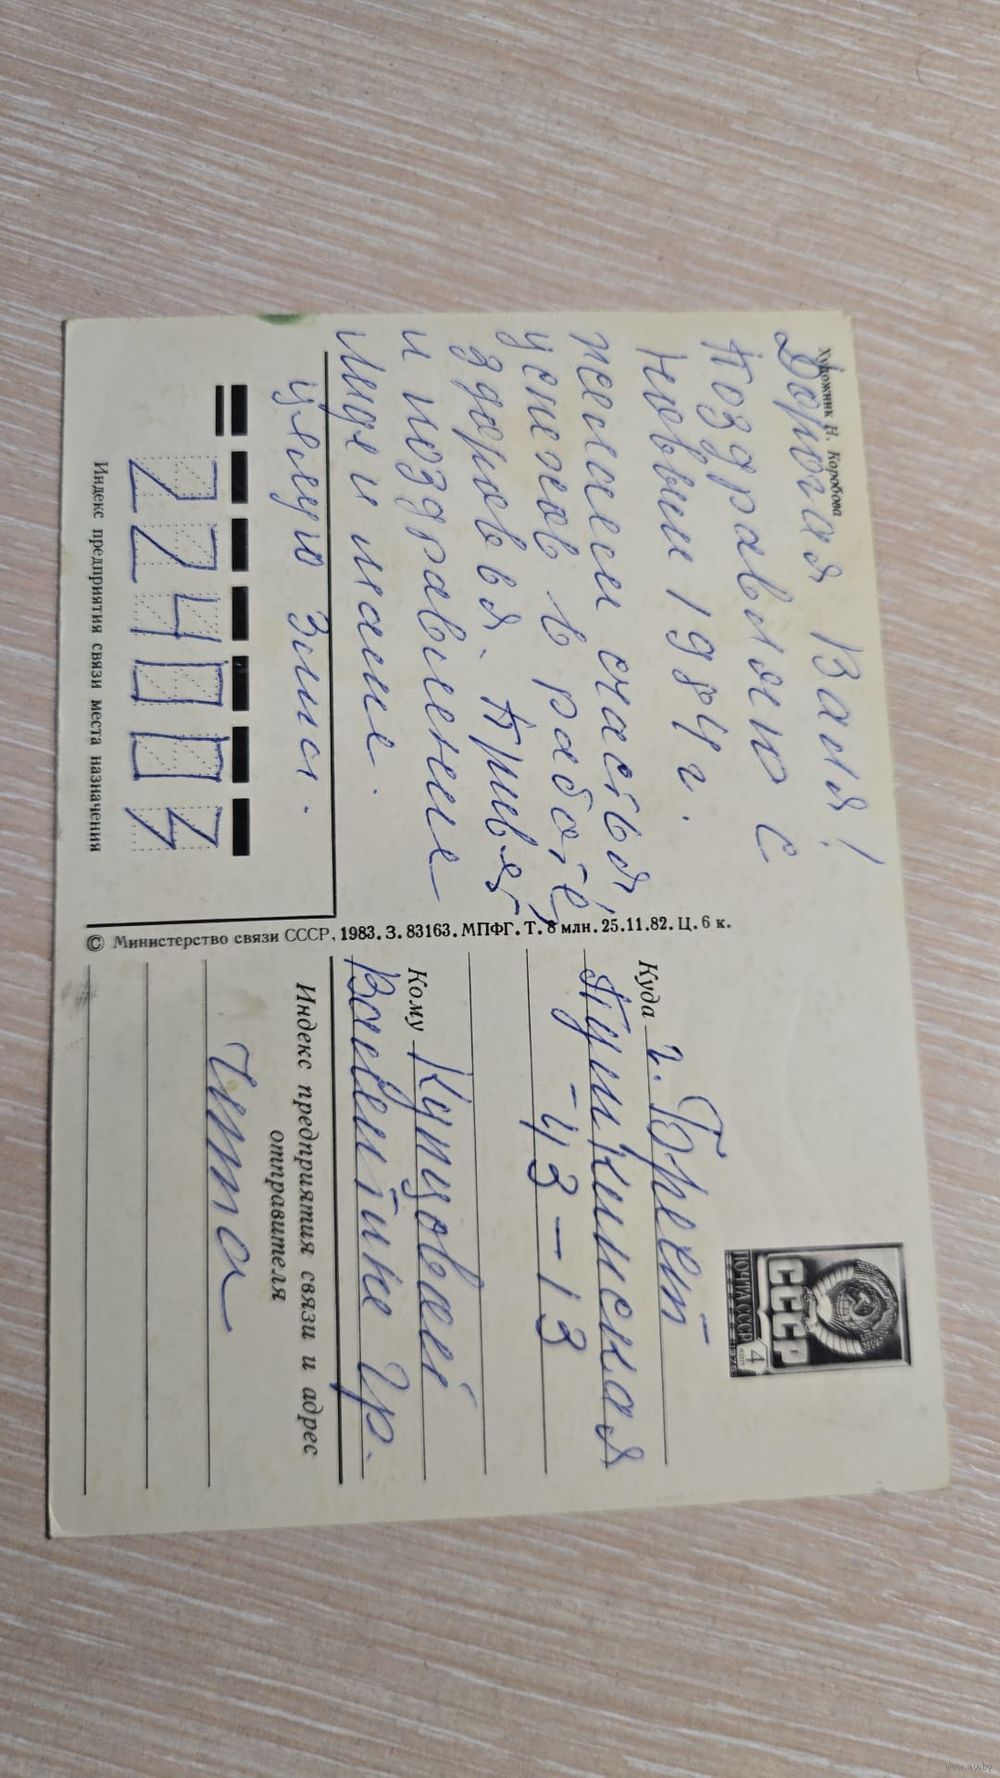 Художник Н. Коробова
Дорогая Валя!
Поздравляю с
Новым 1984 г.
желаем счастья
успехов в работе,
здоровья. Привет
и поздравление
Лиде и маме.
целую Зина.
224003
Индекс предприятия связи места назначения
© Министерство связи СССР, 1983. З. 83163. МПФГ. Т. 8 млн. 25.11.82. Ц. 6 к.
ПОЧТА СССР
СССР
4
КОП
1976
Куда г. Брест
Пушкинская
43-13
Кому Купцовой
Валентине Гр.
Индекс предприятия связи и адрес
отправителя
Чита
www.ay.by